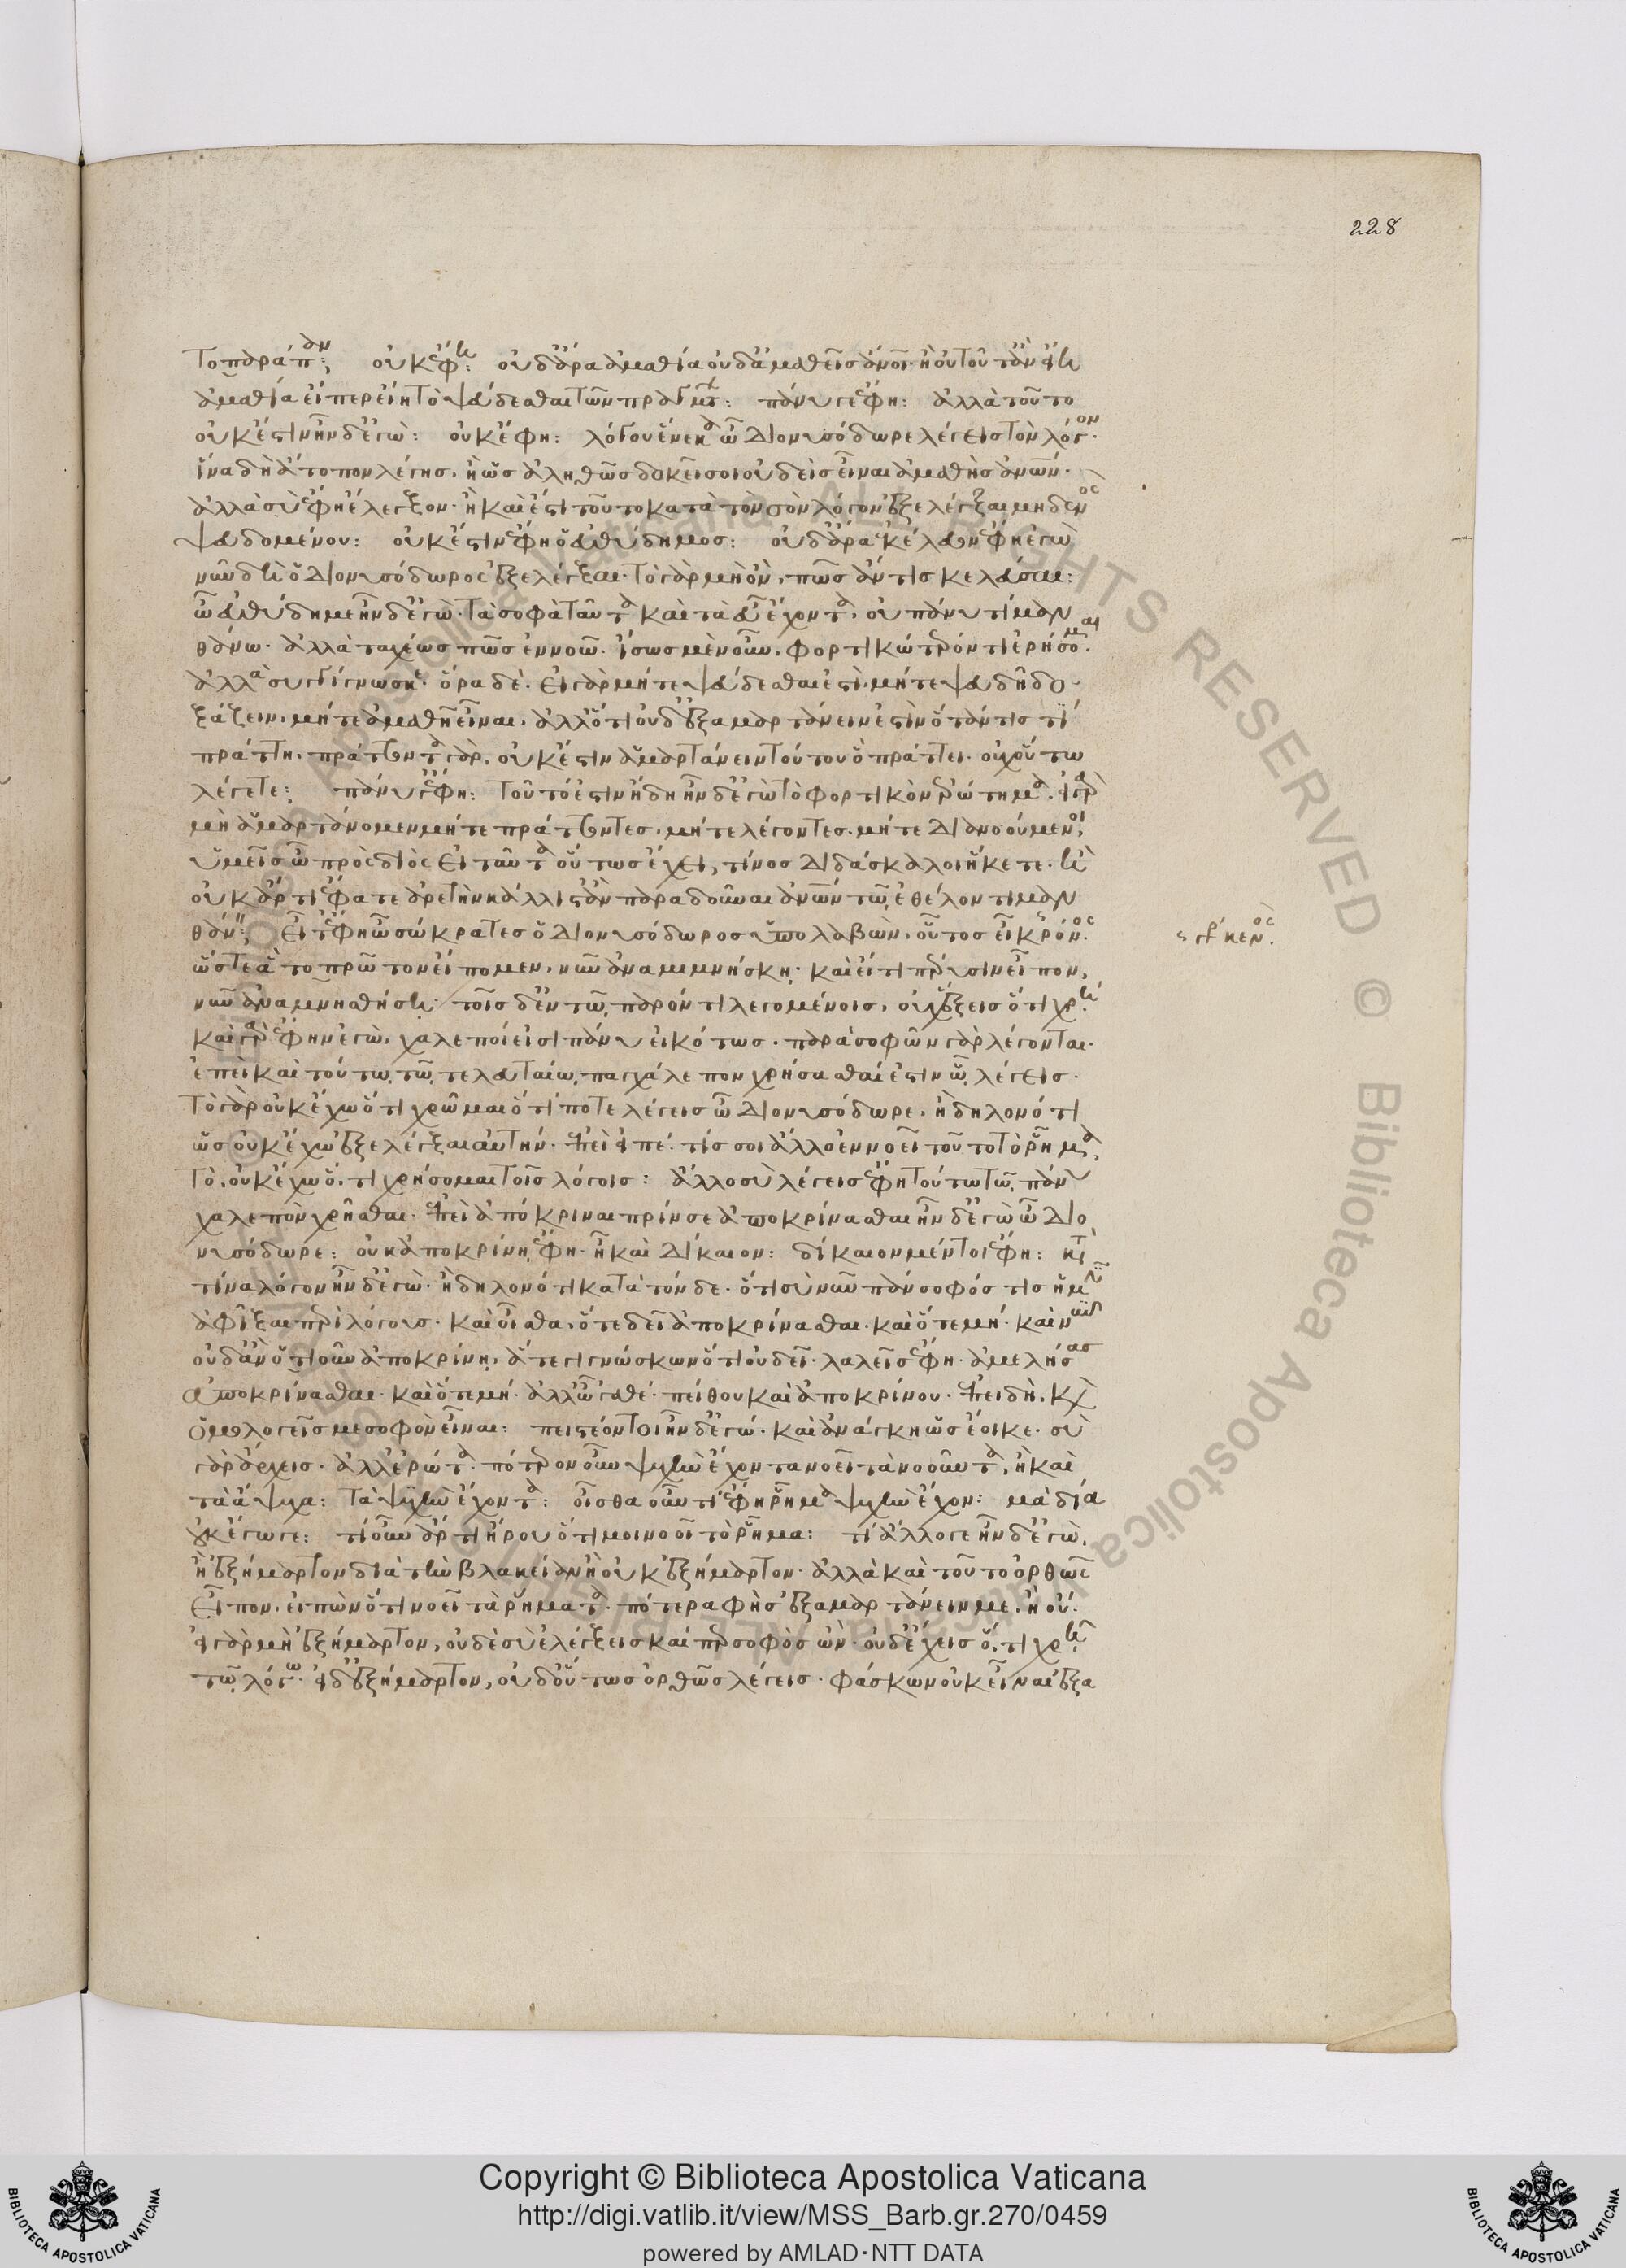 τὸ παράπαν; οὐκ ἔφη: οὐδ' ἄρα ἀμαθία οὐδ' ἀμαθεῖς ἄνοι· ἢ οὐ τοῦτ' ἂν εἴη
ἀμαθία εἴπερ εἴη τὸ ψεύδεσθαι τῶν πραγμάτ: πάνυ γε ἔφη: ἀλλὰ τοῦτο
οὐκ ἔστιν ἦν δ' ἐγώ: οὐκ ἔφη: λόγου ἕνεκα ὦ Διονυσόδωρε λέγεις τὸν λόγον·
ἵνα δὴ ἄτοπον λέγης, ἢ ὡς ἀληθῶς δοκεῖ σοι οὐδεὶς εἶναι ἀμαθὴς ἀνων·
ἀλλὰ σὺ ἔφη ἔλεγξον· ἦ καὶ ἔστι τοῦτο κατὰ τὸν σὸν λόγον ἐξελέγξαι μηδενὸς
ψευδομένου: οὐκ ἔστιν ἔφη ὁ εὐθύδημος: οὐδ' ἄρα κέλευεν ἔφη ἐγὼ
νῦν δὴ ὁ Διονυσόδωρος ἐξελέγξαι· τὸ γὰρ μὴ ὂν, πῶς ἄν τις κελεύσαι:
ὦ εὐθύδημε ἦν δ' ἐγώ· τὰ σοφὰ ταῦτα καὶ τὰ εὖ ἔχοντα, οὐ πάνυ τι μαν
θάνω· ἀλλὰ ταχέως πως ἐννοῶ. ἴσως μὲν οὖν, φορτικώτερόν τι ἐρήσομαι.
ἀλλὰ συγγίγνωσκε· ὅρα δέ. εἰ γὰρ μήτε ψεύδεσθαι ἐστὶ, μήτε ψευδῆ δο
ξάζειν, μήτε ἀμαθῆ εἶναι, ἄλλο τι οὐδ' ἐξαμαρτάνειν ἐστὶν ὅταν τίς τι
πράττη. πράττοντα γὰρ, οὐκ ἔστιν ἁμαρτάνειν τούτου ὃ πράττει. οὐχ οὕτω
λέγετε; πάνυ γ' ἔφη: τοῦτό ἐστιν ἤδη ἦν δ' ἐγὼ τὸ φορτικὸν ἐρώτημα. εἰ γὰρ
μὴ ἁμαρτάνομεν μήτε πράττοντες, μήτε λέγοντες, μήτε Διανοούμενοι,
ὑμεῖς ὦ πρὸς διὸς εἰ ταῦτα οὕτως ἔχει, τίνος Διδάσκαλοι ἥκετε. ἢ
οὐκ ἄρτι ἔφατε ἀρετὴν κάλλιστ' ἂν παραδοῦναι ἀνων τῷ ἐθέλοντι μαν
θάνειν; εἶτ' ἔφη ὦ σώκρατες ὁ Διονυσόδωρος ὑπολαβὼν, οὕτως εἶ κρόνος.
ὥστε ἃ τὸ πρῶτον εἴπομεν, νῦν ἀναμιμνήσκη. καὶ εἴ τι πέρυσιν εἶπον,
νῦν ἀναμνησθήση. τοῖς δ' ἐν τῷ παρόντι λεγομένοις, οὐχ ἕξεις ὅτι χρῆ.
καὶ γὰρ ἔφην ἐγὼ, χαλεποί εἰσι πάνυ εἰκότως. παρὰ σοφῶν γὰρ λέγονται.
ἐπεὶ καὶ τούτω τῷ τελευταίω παγχάλεπον χρήσασθαί ἐστιν ᾧ λέγεις.
τὸ γὰρ οὐκ ἔχω ὅτι χρῶμαι ὅτι ποτε λέγεις ὦ Διονυσόδωρε, ἢ δηλονότι
ὡς οὐκ ἔχω ἐξελέγξαι αὐτήν. ἐπεὶ εἰπέ· τίς σοι ἄλλο ἐννοεῖ τοῦτο τὸ ῥῆμα,
τὸ, οὐκ ἔχω ὅ, τι χρήσομαι τοῖς λόγοις: ἄλλο σὺ λέγεις ἔφη τούτω τῷ πάνυ
χαλεπὸν χρῆσθαι. ἐπεὶ ἀπόκριναι πρίν σε ἀποκρίνασθαι ἦν δ' ἐγὼ ὦ Διο
νυσόδωρε: οὐκ ἀποκρίνη ἔφη. ἦ καὶ Δίκαιον: δίκαιον μέντοι ἔφη: κατὰ
τίνα λόγον ἦν δ' ἐγώ. ἢ δηλονότι κατὰ τόνδε. ὅτι σὺ νῦν πάνσοφός τις ἡμῖν
ἀφῖξαι περὶ λόγους. καὶ οἶσθα, ὅτε δεῖ ἀποκρίνασθαι. καὶ ὅτε μή. καὶ νῦν
οὐδ' ἂν ὁτιοῦν ἀποκρίνη, ἅτε γιγνώσκων ὅτι οὐ δεῖ. λαλεῖς ἔφη. ἀμελήσας
ἀποκρίνασθαι. καὶ ὅτε μή. ἀλλ' ὦγαθέ. πείθου καὶ ἀποκρίνου. ἐπειδὴ, καὶ
ὁμολογεῖς με σοφὸν εἶναι: πειστέον τοι ἦν δ' ἐγώ. καὶ ἀνάγκη ὡς ἔοικε. σὺ
γὰρ ἄρχεις. ἀλλ' ἐρώτα. πότερον οὖν ψυχὴν ἔχοντα νοεῖ τὰ νοοῦντα, ἢ καὶ
τὰ ἄψυχα: τὰ ψυχὴν ἔχοντα: οἶσθα οὖν τι ἔφη ῥῆμα ψυχὴν ἔχον: μὰ δία
οὐκ ἔγωγε: τί οὖν ἄρτι ἤρου ὅτι μοι νοοῖ τὸ ῥῆμα: τί ἄλλο γε ἦν δ' ἐγὼ,
ἢ ἐξήμαρτον διὰ τὴν βλακείαν ἢ οὐκ ἐξήμαρτον. ἀλλὰ καὶ τοῦτο ὀρθῶς
εἶπον, εἰπὼν ὅτι νοεῖ τὰ ῥήματα. πότερα φὴς ἐξαμαρτάνειν με, ἢ οὔ.
εἰ γὰρ μὴ ἐξήμαρτον, οὐδὲ σὺ ἐλέγξεις καίπερ σοφὸς ὢν. οὐδ' ἔχεις ὅ, τι χρῆ
τῷ λόγω. εἰ δ' ἐξήμαρτον, οὐδ' οὕτως ὀρθῶς λέγεις. φάσκων οὐκ εἶναι ἐξα
228
Copyright © Biblioteca Apostolica Vaticana
http://digi.vatlib.it/view/MSS_Barb.gr.270/0459
powered by AMLAD·NTT DATA
BIBLIOTECA APOSTOLICA VATICANA
BIBLIOTECA APOSTOLICA VATICANA